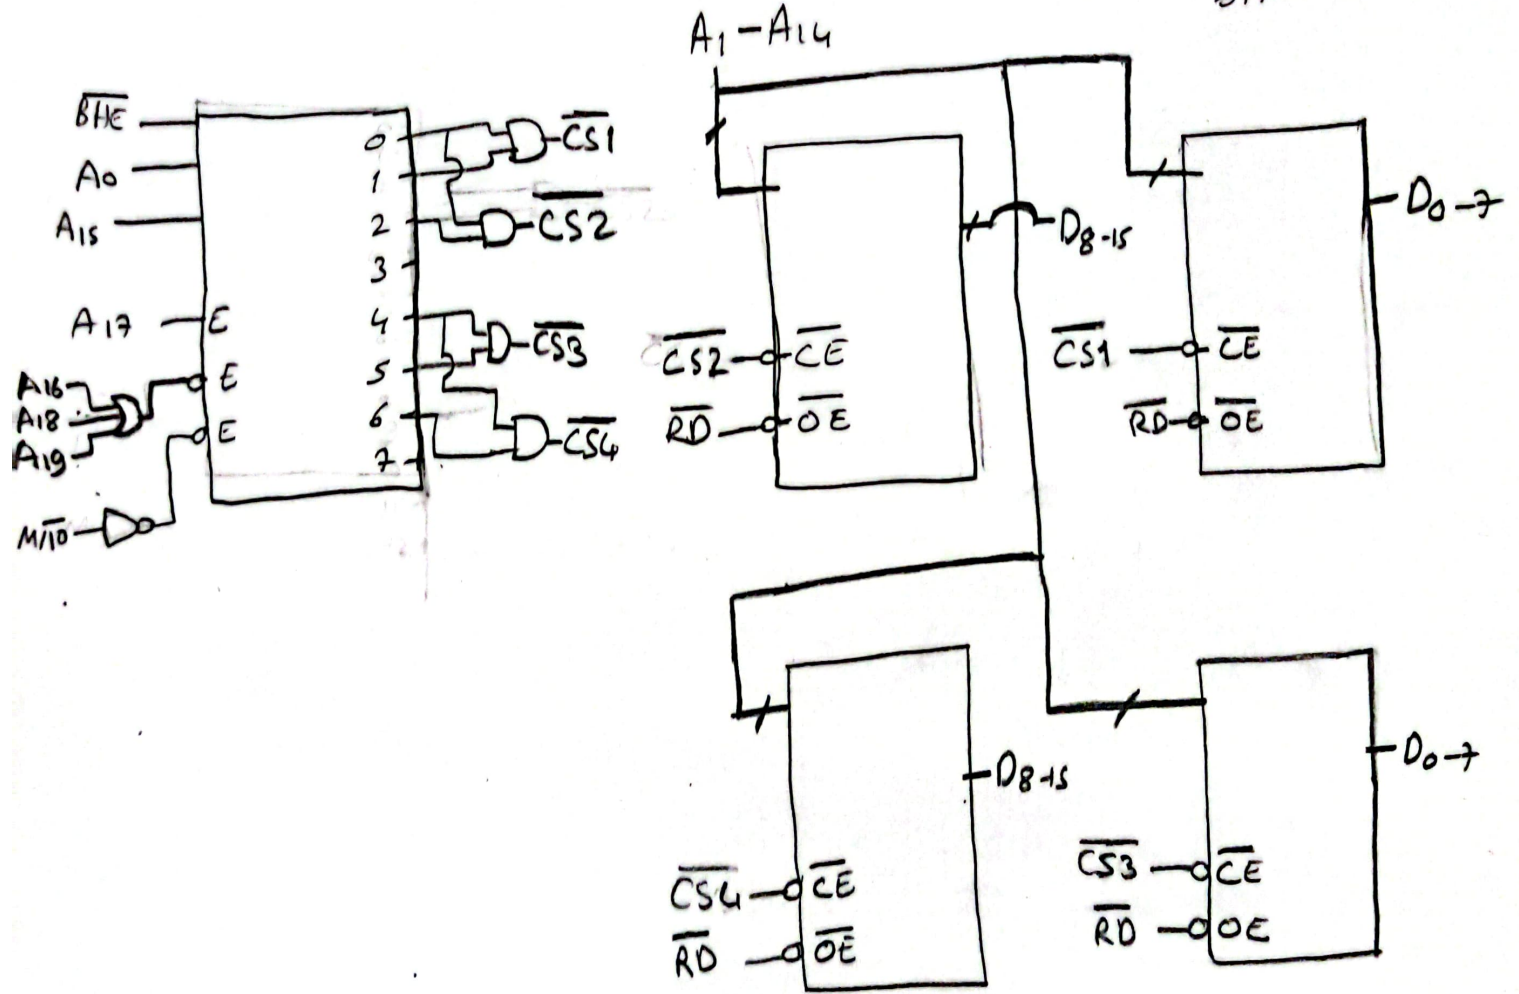 A1-A14
B̅H̅E̅
A0
A15
A17
A16
A18
A19
M/I̅O̅
E
E
E
0
1
2
3
4
5
6
7
C̅S̅1̅
C̅S̅2̅
C̅S̅3̅
C̅S̅4̅
D8-15
C̅S̅2̅ C̅E̅
R̅D̅ O̅E̅
D0-7
C̅S̅1̅ C̅E̅
R̅D̅ O̅E̅
D8-15
C̅S̅4̅ C̅E̅
R̅D̅ O̅E̅
D0-7
C̅S̅3̅ C̅E̅
R̅D̅ OE